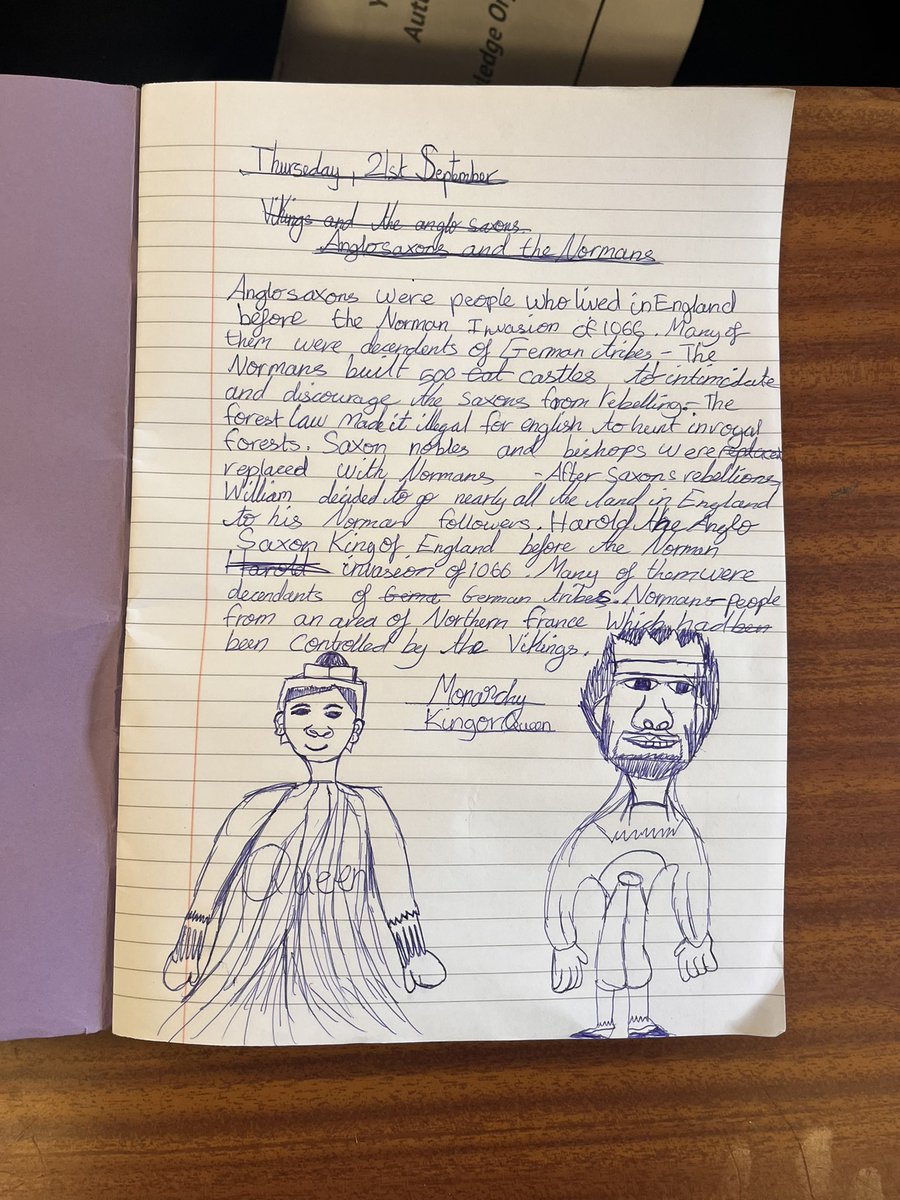 Aut
ledge Or
Thurseday, 21st September
Vikings and the anglo saxons.
Anglosaxons and the Normans
Anglosaxons were people who lived in England
before the Norman Invasion of 1066. Many of
them were decendents of German tribes - The
Normans built 500 cat castles to intimidate
and discourage the saxons from rebelling. - The
forest law made it illegal for english to hunt in royal
forests. Saxon nobles and bishops were replaced
replaced with Normans - After saxons rebellions
William decided to go nearly all the land in England
to his Norman followers. Harold the Anglo
Saxon King of England before the Norman
Harold invasion of 1066. Many of them were
decendants of Gema German tribes. Normans - people
from an area of Northern france which had been
been controlled by the Vikings.
Monarchy
King or Queen
Queen